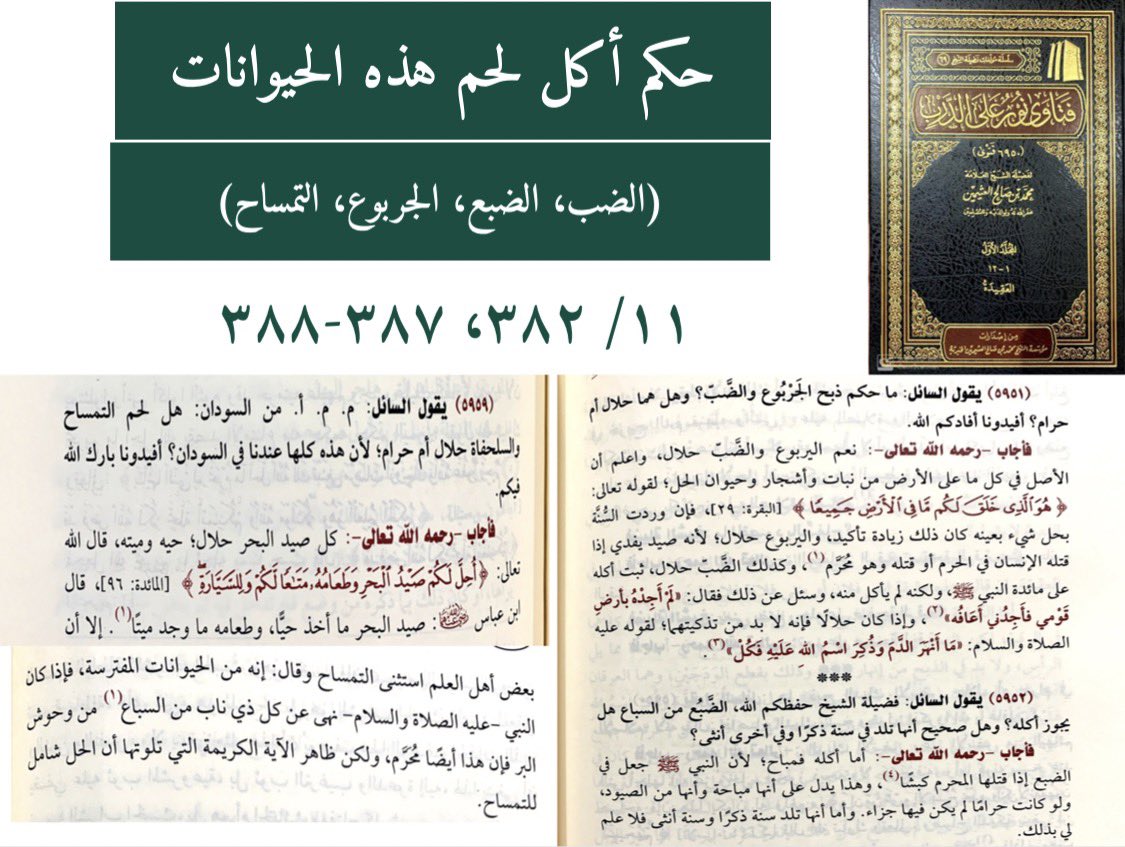 حكم أكل لحم هذه الحيوانات
(الضب، الضبع، الجربوع، التمساح)
١١/ ٣٨٢، ٣٨٧-٣٨٨
فتاوى نور على الدرب
(٦٩٥٠ فتوى)
لفضيلة الشيخ العلامة
محمد بن صالح العثيمين
غفر الله له ولوالديه وللمسلمين
المجلد الأول
١-١٢
العقيدة
من إصدارات
مؤسسة الشيخ محمد بن صالح العثيمين الخيرية
(٥٩٥١) يقول السائل: ما حكم ذبح الجَرْبُوع والضَّبّ؟ وهل هما حلال أم
حرام؟ أفيدونا أفادكم الله.
فأجاب -رحمه الله تعالى-: نعم اليربوع والضَّبّ حلال، واعلم أن
الأصل في كل ما على الأرض من نبات وأشجار وحيوان الحل؛ لقوله تعالى:
﴿هُوَ ٱلَّذِى خَلَقَ لَكُم مَّا فِى ٱلْأَرْضِ جَمِيعًا﴾ [البقرة: ٢٩]، فإن وردت السُّنَّة
بحل شيء بعينه كان ذلك زيادة تأكيد، واليربوع حلال؛ لأنه صيد يفدي إذا
قتله الإنسان في الحرم أو قتله وهو مُحْرِم(١)، وكذلك الضَّبّ حلال، ثبت أكله
على مائدة النبي ﷺ، ولكنه لم يأكل منه، وسئل عن ذلك فقال: «لَمْ أَجِدْهُ بأرضِ
قَوْمي فأجِدُني أعَافُه»(٢)، وإذا كان حلالًا فإنه لا بد من تذكيتهما؛ لقوله عليه
الصلاة والسلام: «مَا أَنْهَرَ الدَّمَ وَذُكِرَ اسْمُ الله عَلَيْهِ فَكُلْ»(٣).
***
(٥٩٥٢) يقول السائل: فضيلة الشيخ حفظكم الله، الضَّبُع من السباع هل
يجوز أكله؟ وهل صحيح أنها تلد في سنة ذكرًا وفي أخرى أنثى؟
فأجاب -رحمه الله تعالى-: أما أكله فمباح؛ لأن النبي ﷺ جعل في
الضبع إذا قتلها المحرم كبشًا(٤)، وهذا يدل على أنها مباحة وأنها من الصيود،
ولو كانت حرامًا لم يكن فيها جزاء. وأما أنها تلد سنة ذكرًا وسنة أنثى فلا علم
لي بذلك.
(٥٩٥٩) يقول السائل: م. م. أ. من السودان: هل لحم التمساح
والسلحفاة حلال أم حرام؛ لأن هذه كلها عندنا في السودان؟ أفيدونا بارك الله
فيكم.
فأجاب -رحمه الله تعالى-: كل صيد البحر حلال؛ حيه وميته، قال الله
تعالى: ﴿أُحِلَّ لَكُمْ صَيْدُ ٱلْبَحْرِ وَطَعَامُهُۥ مَتَٰعًا لَّكُمْ وَلِلسَّيَّارَةِ﴾ [المائدة: ٩٦]، قال
ابن عباس رضي الله عنهما: صيد البحر ما أخذ حيًّا، وطعامه ما وجد ميتًا(١). إلا أن
بعض أهل العلم استثنى التمساح وقال: إنه من الحيوانات المفترسة، فإذا كان
النبي -عليه الصلاة والسلام- نهى عن كل ذي ناب من السباع(١) من وحوش
البر فإن هذا أيضًا مُحَرَّم، ولكن ظاهر الآية الكريمة التي تلوتها أن الحل شامل
للتمساح.